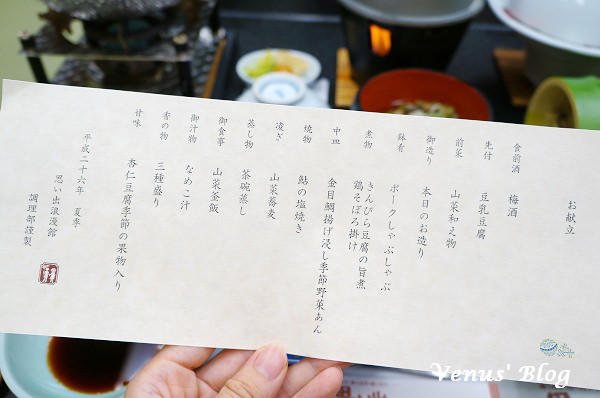 お献立
食前酒 梅酒
先付 豆乳豆腐
前菜 山菜和え物
御造り 本日のお造り
鉢肴 ポークしゃぶしゃぶ
煮物 きんぴら豆腐の旨煮
鶏そぼろ掛け
中皿 金目鯛揚げ浸し季節野菜あん
焼物 鮎の塩焼き
凌ぎ 山菜蕎麦
蒸し物 茶碗蒸し
御食事 山菜釜飯
御汁物 なめこ汁
香の物 三種盛り
甘味 杏仁豆腐季節の果物入り
平成二十六年 夏季
思い出浪漫館
調理部謹製
Venus' Blog